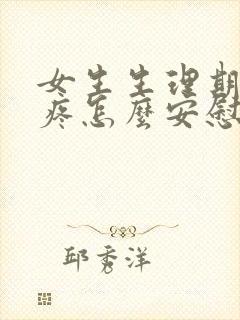 女生生理期
疼怎麼安慰
邱秀洋